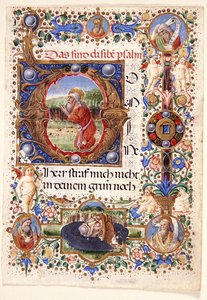 Das sind disibē psalm
O
Herr straf mich nicht
in deinem grim noch